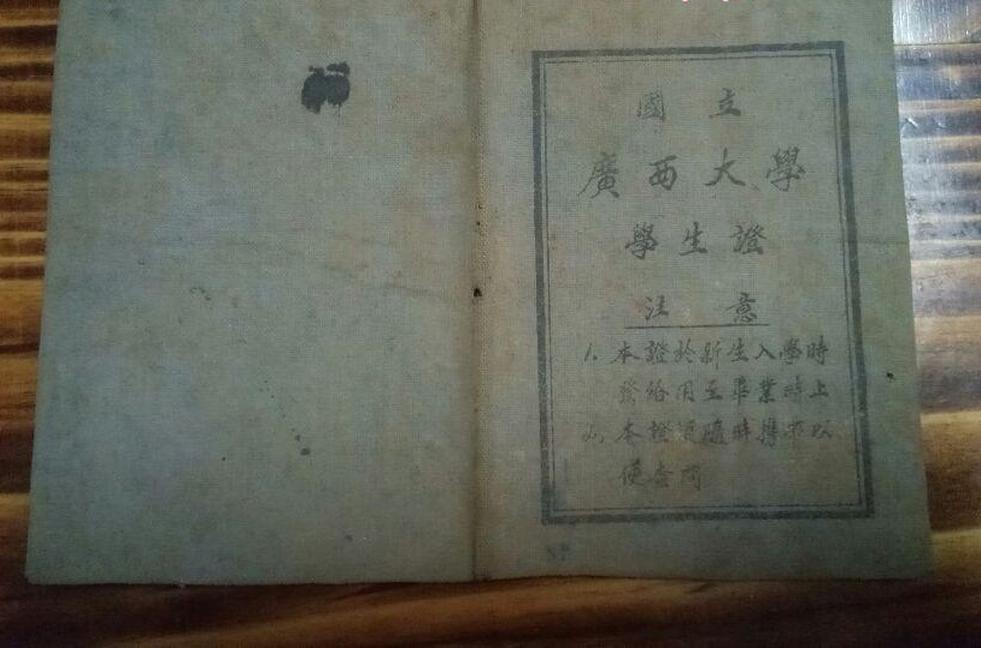 國立
廣西大學
學生證
注意
1. 本證於新生入學時
發給用至畢業時上
2. 本證須隨時攜帶以
便查問